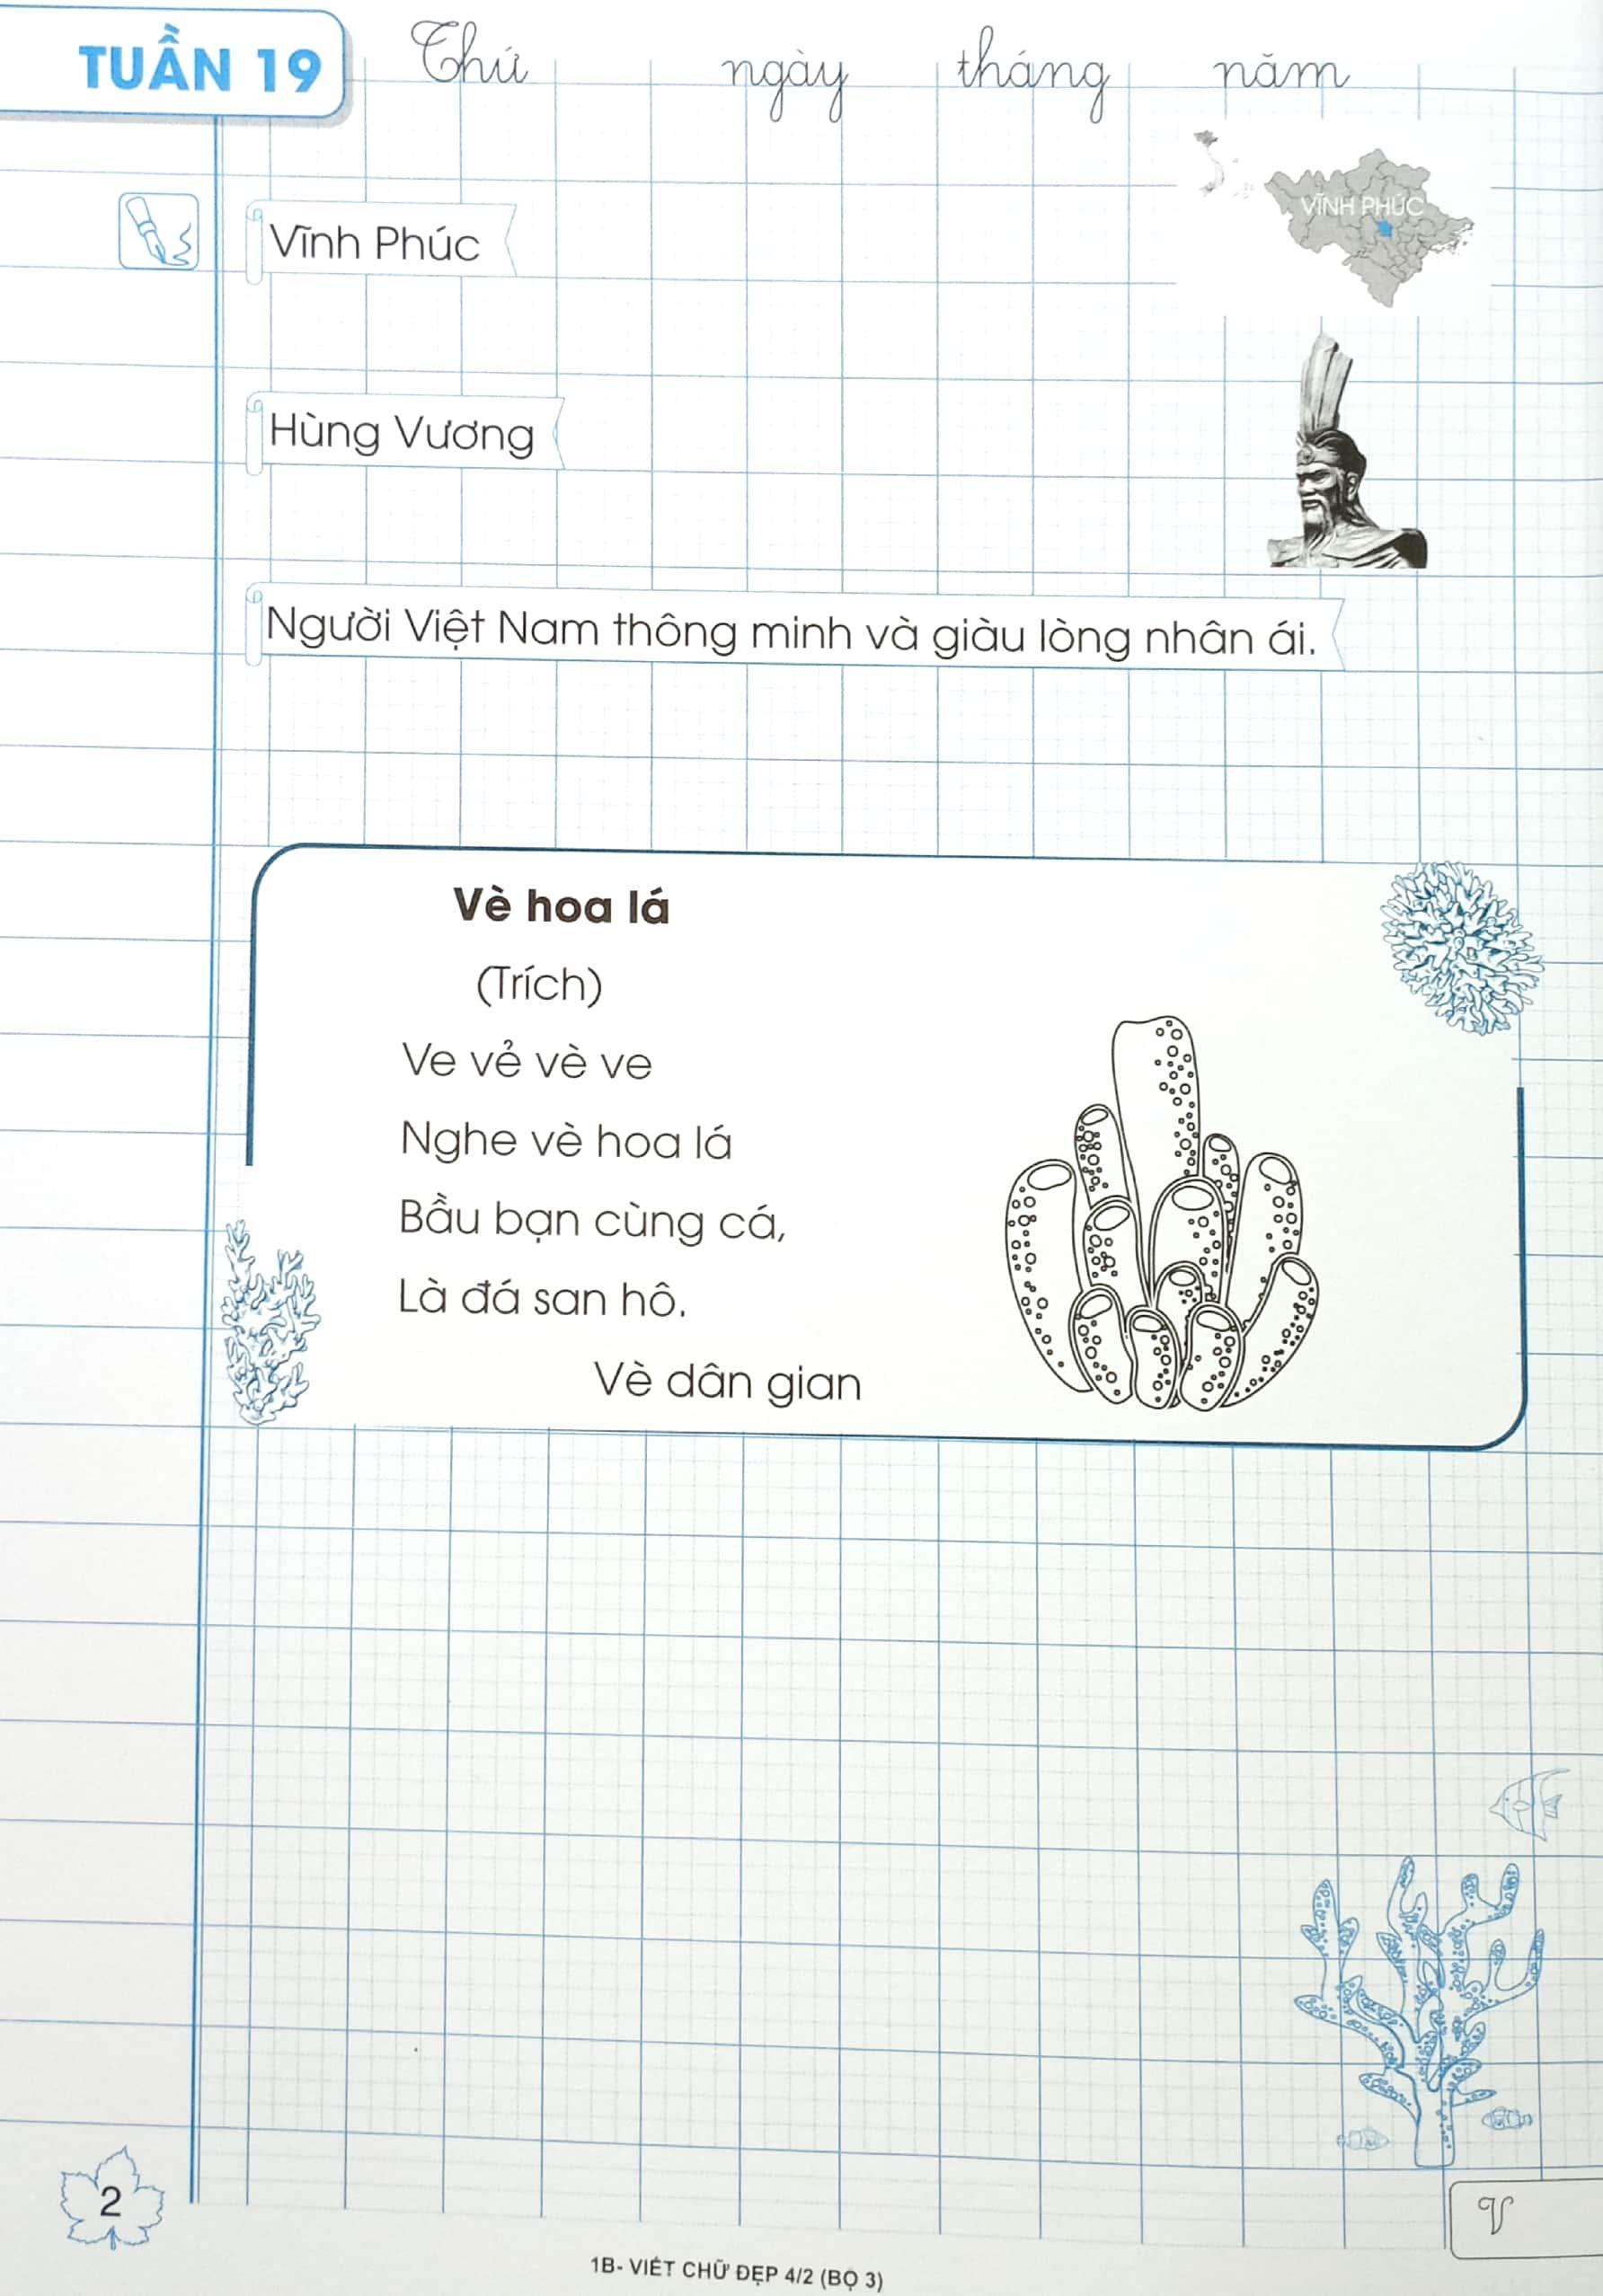 TUẦN 19
Thứ ngày tháng năm
VĨNH PHÚC
Vĩnh Phúc
Hùng Vương
Người Việt Nam thông minh và giàu lòng nhân ái.
Vè hoa lá
(Trích)
Ve vẻ vè ve
Nghe vè hoa lá
Bầu bạn cùng cá,
Là đá san hô.
Vè dân gian
2
V
1B- VIẾT CHỮ ĐẸP 4/2 (BỘ 3)